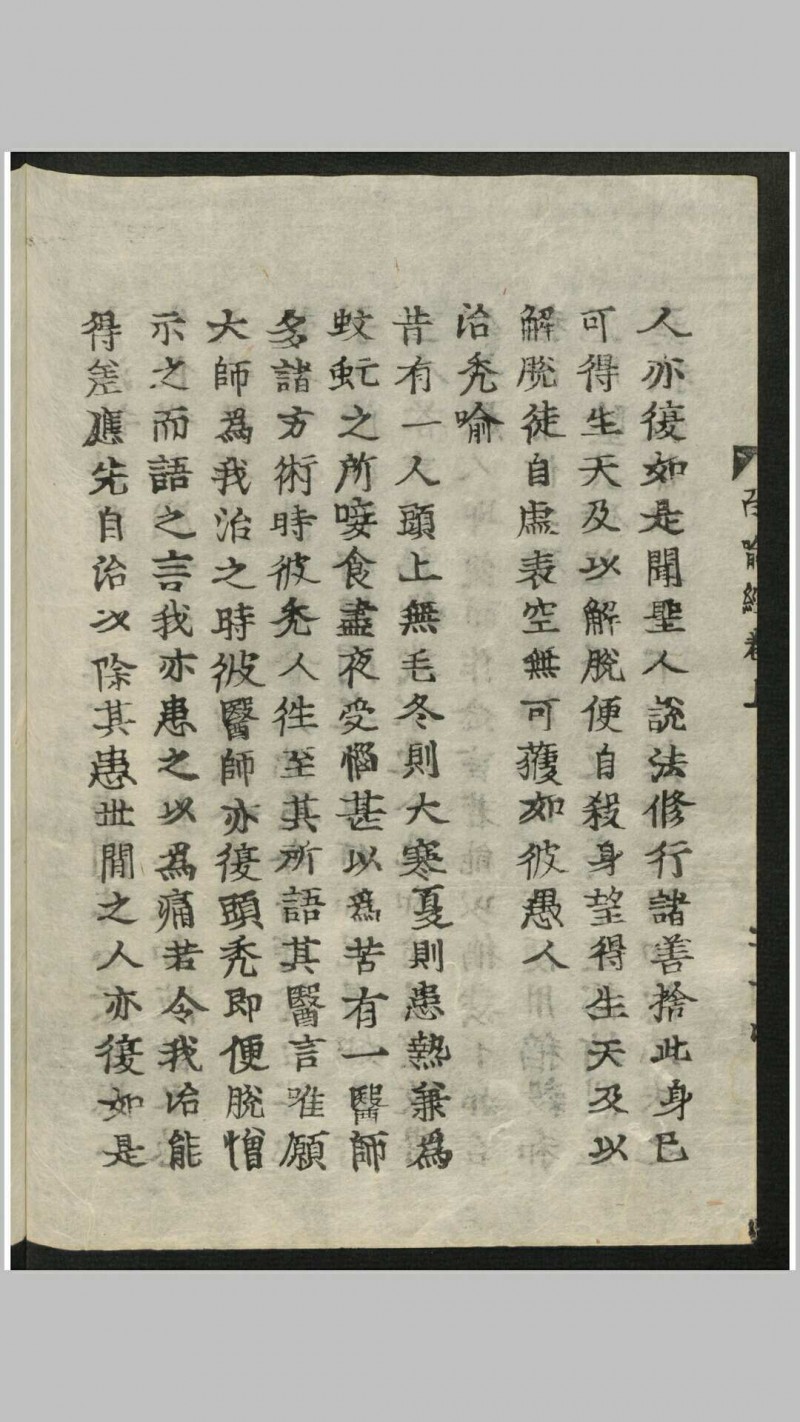 百喻經卷上
人亦復如是聞聖人說法修行諸善捨此身已
可得生天及以解脫便自殺身望得生天及以
解脫徒自虛喪空無可獲如彼愚人
治禿喻
昔有一人頭上無毛冬則大寒夏則患熱兼為
蚊虻之所唼食晝夜受惱甚以為苦有一醫師
多諸方術時彼禿人往至其所語其醫言唯願
大師為我治之時彼醫師亦復頭禿即便脫帽
示之而語之言我亦患之以為痛若令我治能
得差應先自治以除其患世間之人亦復如是